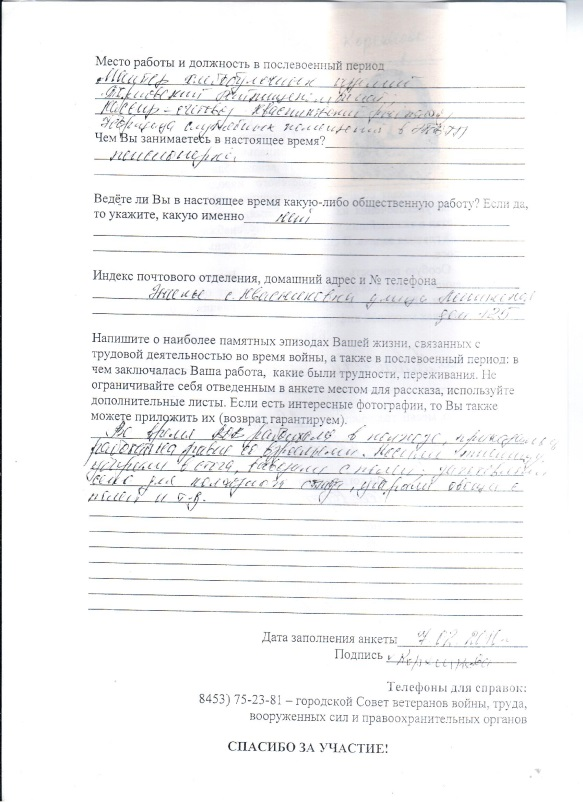 Место работы и должность в послевоенный период
Мастер хлебобулочных изделий
Кассир-счетовод Квасниковский
Уборщица служебных помещений в
Чем Вы занимаетесь в настоящее время?
пенсионерка
Ведёте ли Вы в настоящее время какую-либо общественную работу? Если да,
то укажите, какую именно нет
Индекс почтового отделения, домашний адрес и № телефона
Энгельс с. Квасниковка улица
дом 125
Напишите о наиболее памятных эпизодах Вашей жизни, связанных с
трудовой деятельностью во время войны, а также в послевоенный период: в
чем заключалась Ваша работа, какие были трудности, переживания. Не
ограничивайте себя отведенным в анкете местом для рассказа, используйте
дополнительные листы. Если есть интересные фотографии, то Вы также
можете приложить их (возврат гарантируем).
Во время ВОВ работала в колхозе,
работала на равне со взрослыми. Косили пшеницу,
убирали в стога,
сено для колхозного скота, убирали овощи с
полей и т.д.
Дата заполнения анкеты 7 02
Подпись
Телефоны для справок:
8453) 75-23-81 – городской Совет ветеранов войны, труда,
вооруженных сил и правоохранительных органов
СПАСИБО ЗА УЧАСТИЕ!